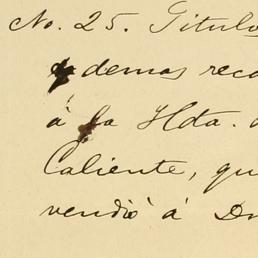 No. 25. Titulo
y demas reco
à la Hda. d
Caliente, que
vendió á Dn